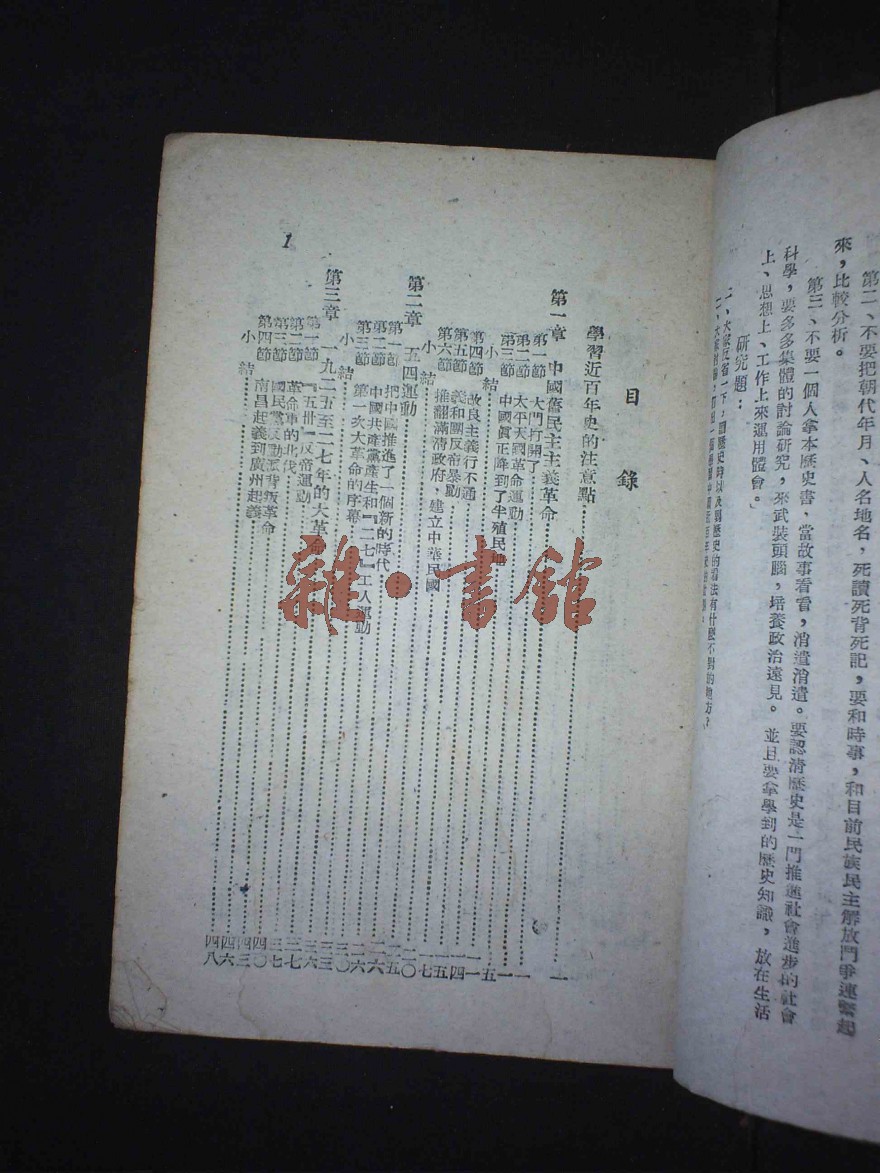 第二、不要把朝代年月、人名地名，死讀死背死記，要和時事，和目前民族民主解放鬥爭連繫起
來，比較分析。
第三、不要一個人拿本歷史書，當故事看看，消遣消遣。要認清歷史是一門推進社會進步的社會
科學，要多多集體的討論研究，來武裝頭腦，培養政治遠見。並且要拿學到的歷史知識，放在生活
上、思想上、工作上來運用體會。
研究題：
目錄
學習近百年史的注意點
第一章 中國舊民主主義革命 一
第一節 大門打開了 一
第二節 太平天國革命運動
第三節 中國眞正降到了半殖民地
小結
第四節 改良主義行不通
第五節 義和團反帝暴動
第六節 推翻滿清政府，建立中華民國
小結
第二章 五四運動
第一節 把中國推進了一個新的時代
第二節 中國共產黨產生和『二七』工人運動
第三節 第一次大革命的序幕
小結
第三章 一九二五至二七年的大革命
第一節 『五卅』反帝運動
第二節 革命軍的北伐
第三節 國民黨反動派背叛革命
第四節 南昌起義到廣州起義
小結
1
雜·書館